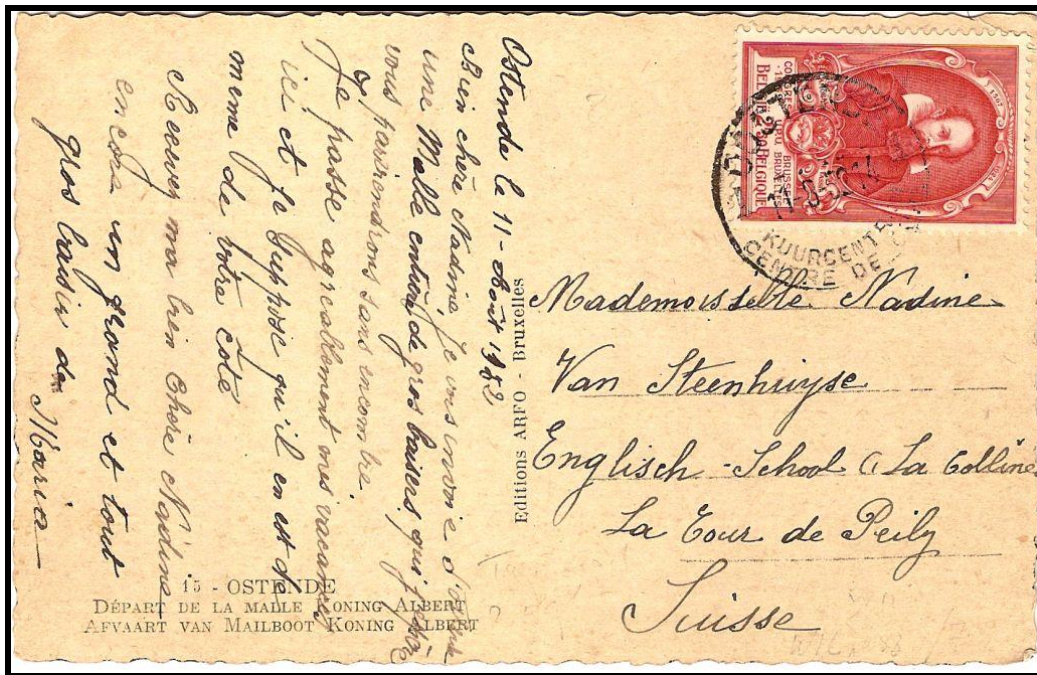 Ostende le 11 - Août 1952
Bien chère Nadine, Je vous envoie d'Ostende
une Malle entière de gros baisers, qui j'espère
vous parviendrons sans encombre.
Je passe agreablement mes vacances
ici et je suppose qu'il en est de
meme de votre côté
Recevez ma bien chère Nadine
encore un grand et tout
gros baiser de
Maria
15 - OSTENDE
DÉPART DE LA MALLE KONING ALBERT
AFVAART VAN MAILBOOT KONING ALBERT
Editions ARFO - Bruxelles
BELGIE 2F50 BELGIQUE
BRUSSEL
BRUXELLES
KUURCENTR
CENTRE DE CU
Mademoisselle Nadine
Van Steenhuyse
Englisch - School (La Colline
La Tour de Peily
Suisse